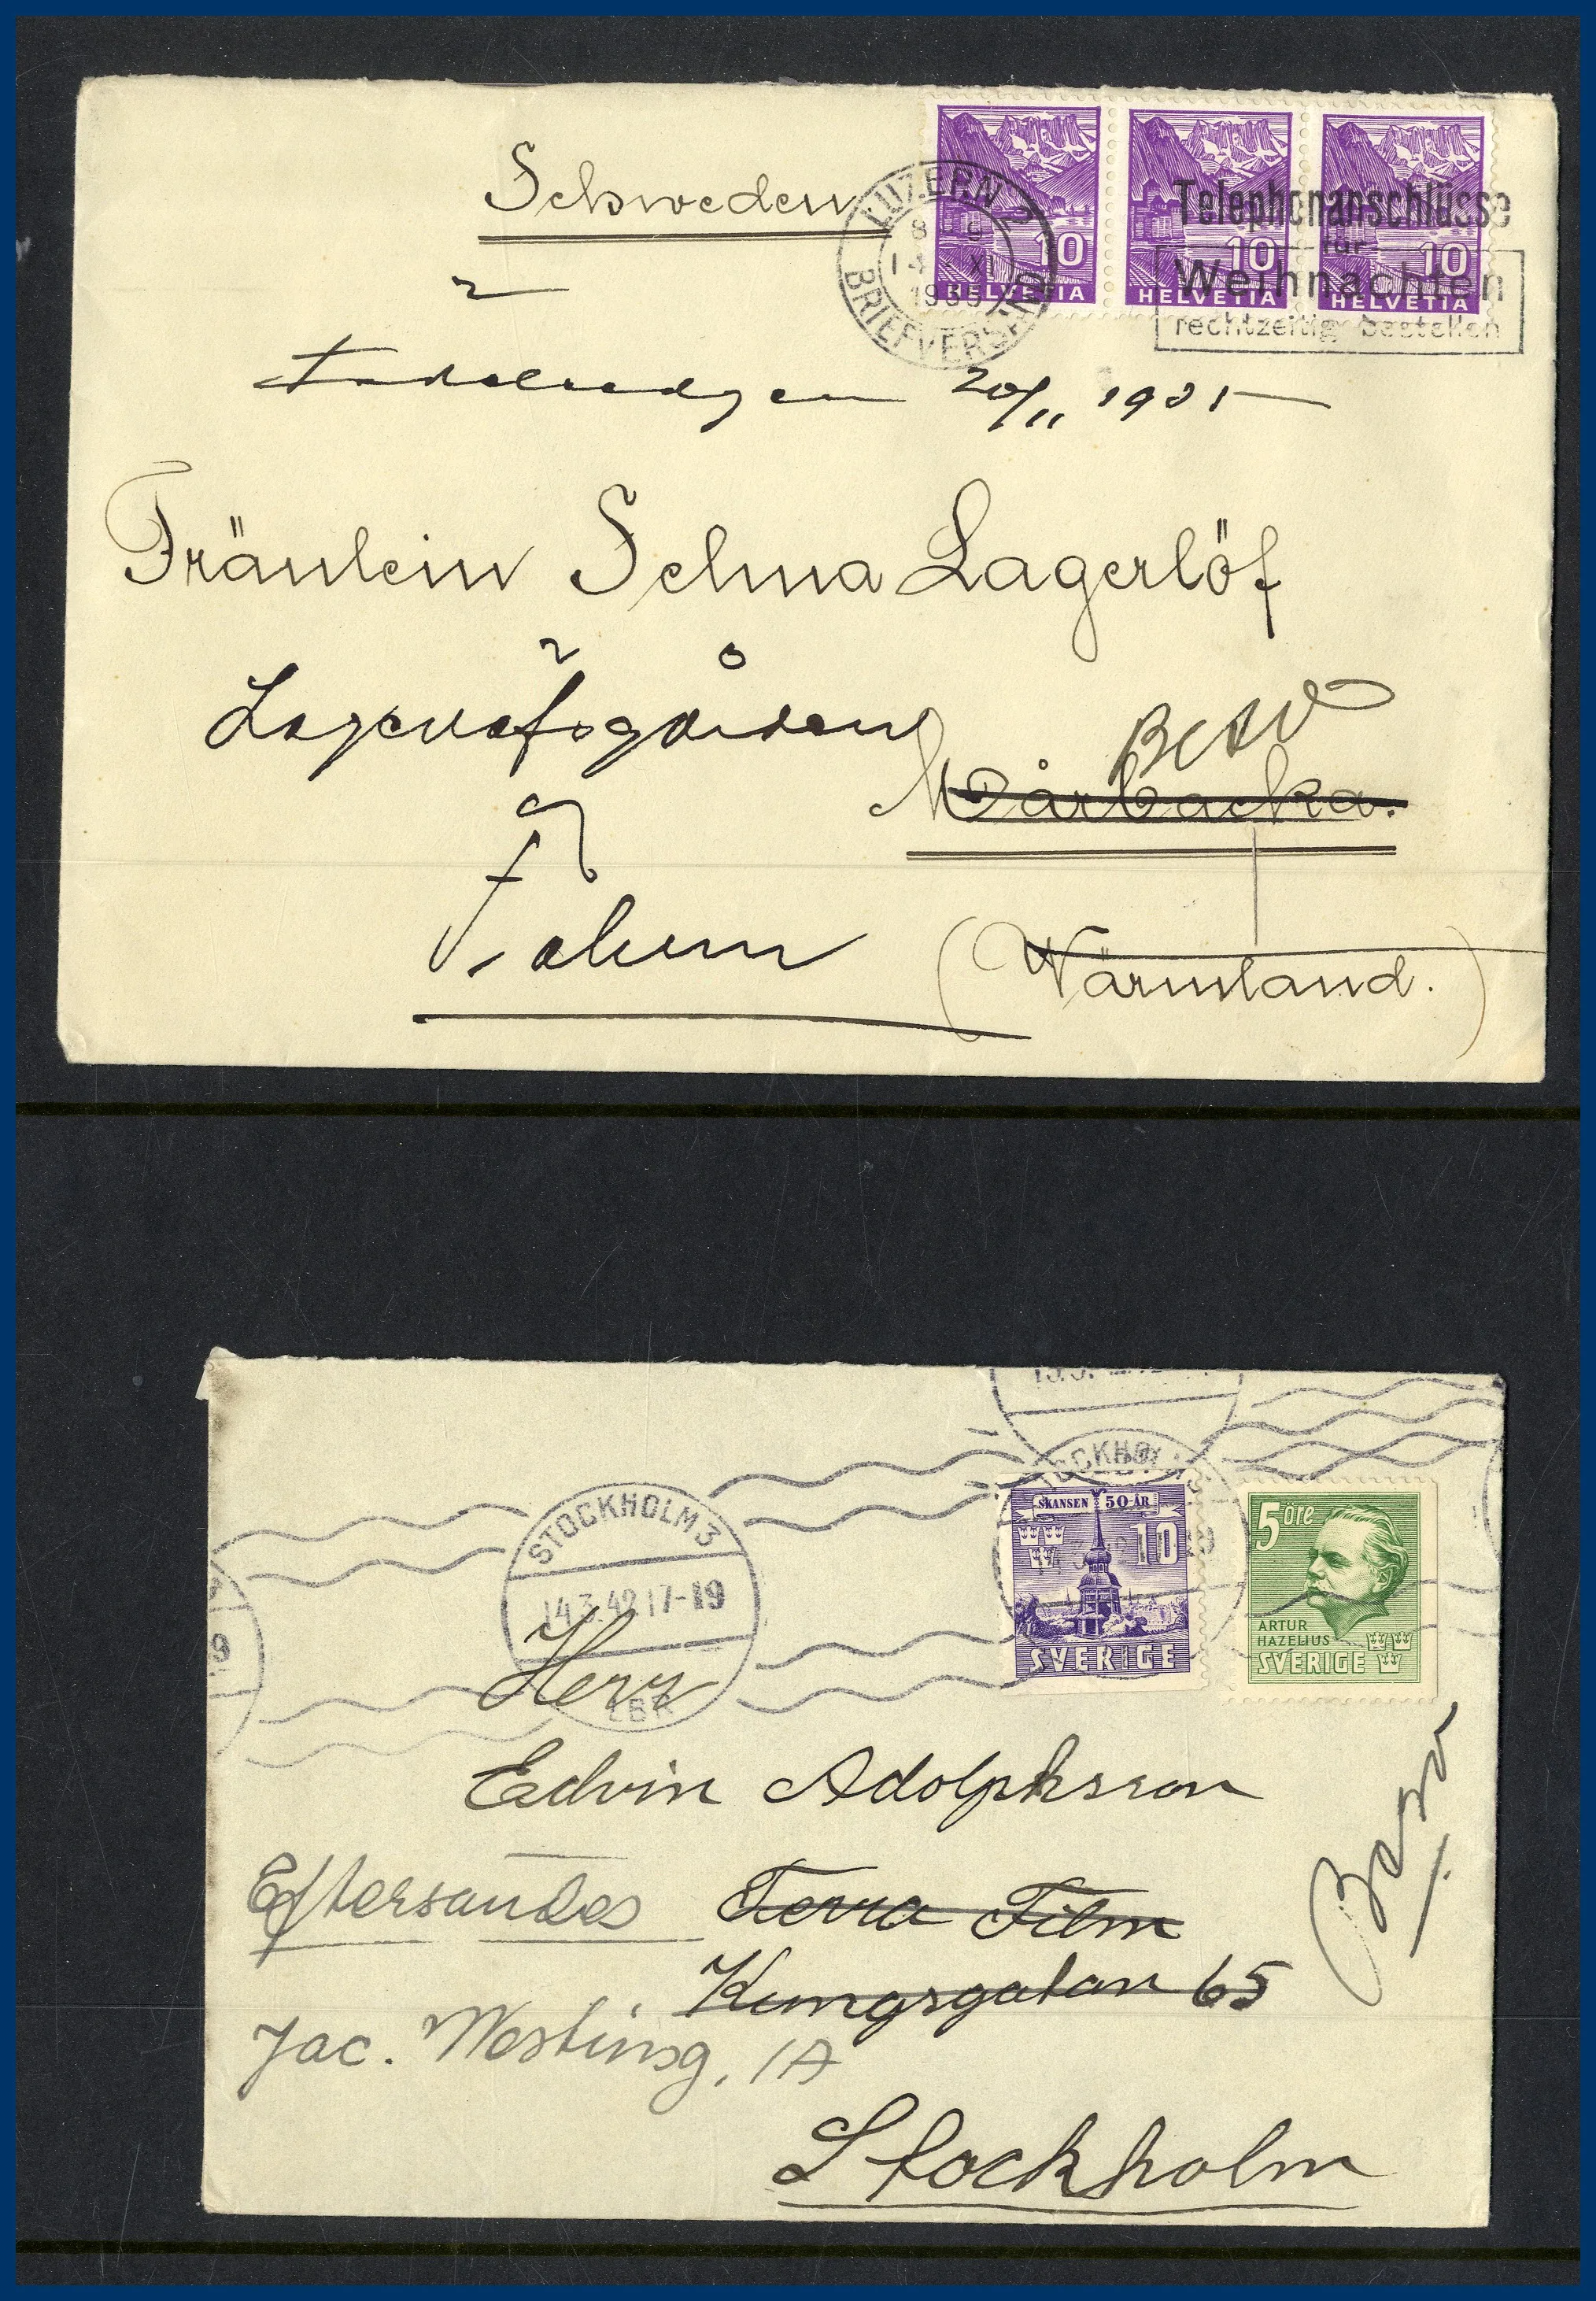 Schweden
LUZERN 2
8-9
14. XI
1935
BRIEFVERSAND
10
HELVETIA
10
HELVETIA
10
HELVETIA
Telephonanschlüsse
für
Weihnachten
rechtzeitig bestellen
20/11 1935
Fräulein Selma Lagerlöf
Mårbacka.
Falun
(Wärmland.)
STOCKHOLM 3
14.3.42 17-19
LBR
STOCKHOLM
SKANSEN 50 ÅR
10
SVERIGE
5 öre
ARTUR
HAZELIUS
SVERIGE
9
Herr
Edvin Adolphson
Eftersändes Terra Film
Kungsgatan 65
Jac. Westinsg. 1A
Stockholm